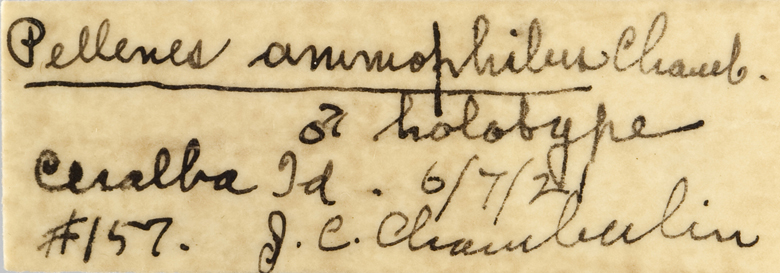 Pellenes ammophilus Chamb.
♂ holotype
Ceralba Id. 6/7/21
#157. J. C. Chamberlin